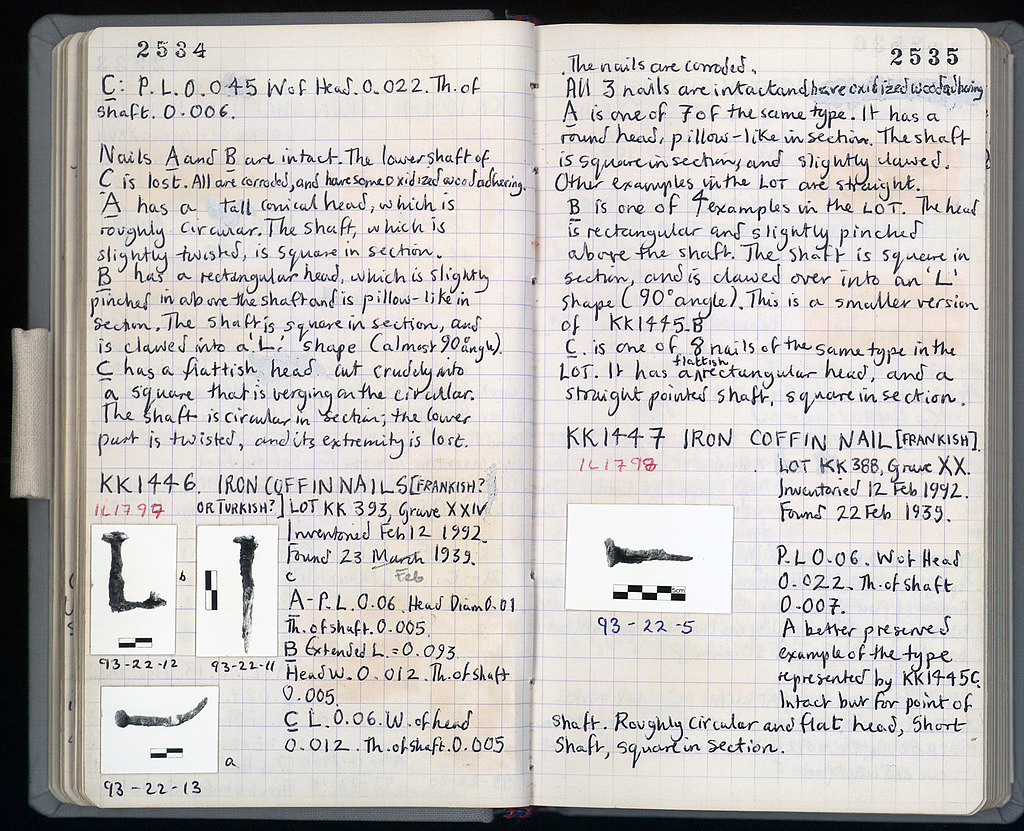 2534
C: P.L.0.045 W of Head.0.022.Th.of
shaft. 0.006.
Nails A and B are intact. The lower shaft of
C is lost. All are corroded, and have some oxidized wood adhering.
A has a tall conical head, which is
roughly circular. The shaft, which is
slightly twisted, is square in section.
B has a rectangular head, which is slightly
pinched in above the shaft and is pillow-like in
section. The shaft is square in section, and
is clawed into a 'L' shape (almost 90° angle).
C has a flattish head cut crudely into
a square that is verging on the circular.
The shaft is circular in section; the lower
part is twisted, and its extremity is lost.
KK1446. IRON COFFIN NAILS [FRANKISH?
OR TURKISH?] LOT KK 393, Grave XXIV
IL1797
Inventoried Feb 12 1992.
Found 23 March 1939.
Feb
b
c
93-22-12
93-22-11
A - P.L.0.06. Head Diam 0.01
Th. of shaft. 0.005.
B Extended L. = 0.093
Head W. 0.012. Th. of shaft
0.005.
C L.0.06. W. of head
0.012. Th. of shaft. 0.005
a
93-22-13
2535
The nails are corroded.
All 3 nails are intact and have oxidized wood adhering
A is one of 7 of the same type. It has a
round head, pillow-like in section. The shaft
is square in section, and slightly clawed.
Other examples in the LOT are straight.
B is one of 4 examples in the LOT. The head
is rectangular and slightly pinched
above the shaft. The shaft is square in
section, and is clawed over into an 'L'
shape (90° angle). This is a smaller version
of KK1445.B
C. is one of 8 nails of the same type in the
LOT. It has a flattish rectangular head, and a
straight pointed shaft, square in section.
KK1447 IRON COFFIN NAIL [FRANKISH].
IL1798
LOT KK 388, Grave XX.
Inventoried 12 Feb 1992.
Found 22 Feb 1939.
5cm
93-22-5
P.L 0.06. W of Head
0.022. Th. of shaft
0.007.
A better preserved
example of the type
represented by KK1445C.
Intact but for point of
shaft. Roughly circular and flat head, short
shaft, square in section.